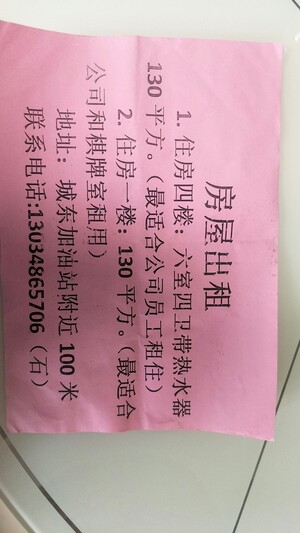 房屋出租
1. 住房四楼：六室四卫带热水器
130 平方。（最适合公司员工租住）
2. 住房一楼：130 平方。（最适合
公司和棋牌室租用）
地址：城东加油站附近 100 米
联系电话:13034865706（石）